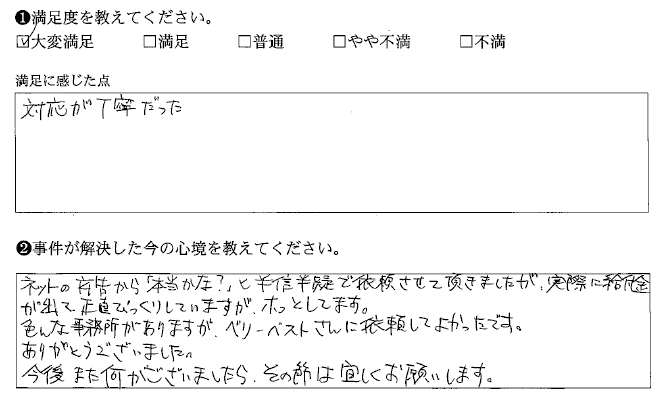 ❶満足度を教えてください。
☑大変満足 □満足 □普通 □やや不満 □不満
満足に感じた点
対応が丁寧だった
❷事件が解決した今の心境を教えてください。
ネットの広告から「本当かな?」と半信半疑で依頼させて頂きましたが、実際に給付金
が出て正直びっくりしていますが、ホッとしてます。
色んな事務所がありますが、ベリーベストさんに依頼してよかったです。
ありがとうございました。
今後また何かございましたら、その節は宜しくお願いします。